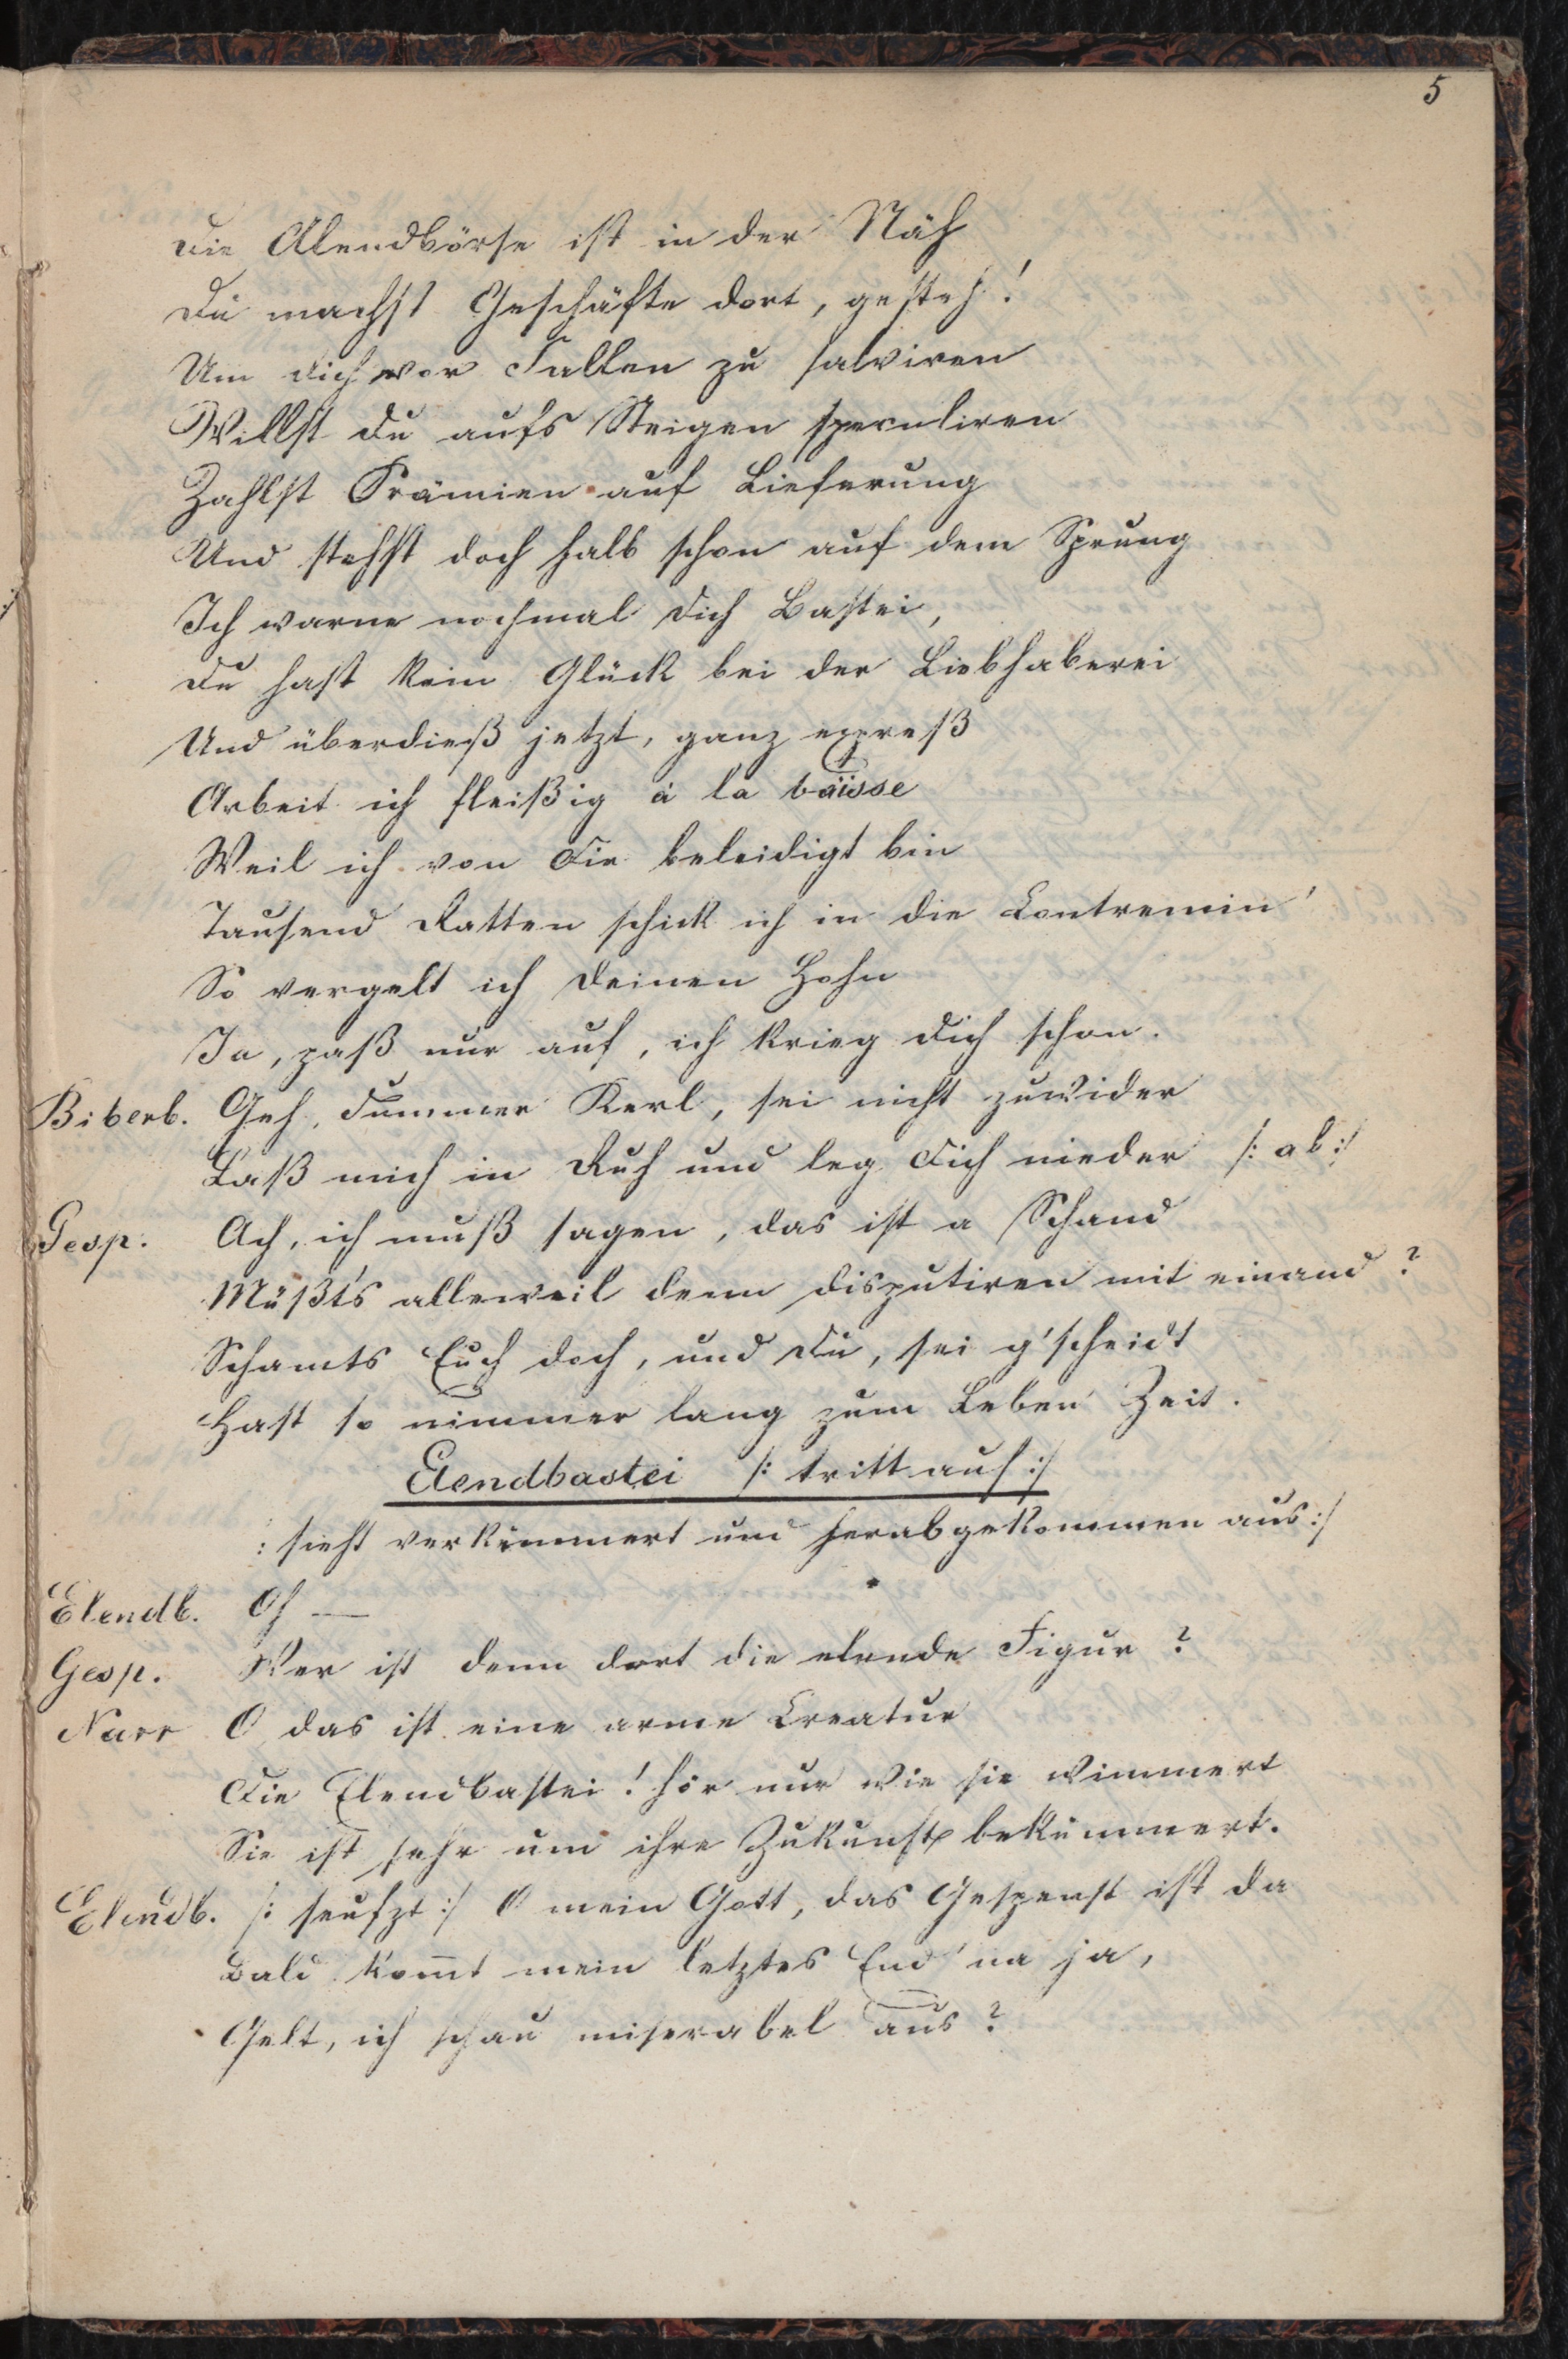 5
Die Abendbörse ist in der Näh
Du machst Geschäfte dort, gesteh!
Um dich vor Fallen zu salviren
Willst du aufs Steigen speculiren
Zahlst Prämien auf Lieferung
Und stehst doch halb schon auf dem Sprung
Ich warne nochmal dich Bastei,
Du hast kein Glück bei der Liebhaberei
Und überdieß jetzt, ganz expreß
Arbeit ich fleißig à la baïsse
Weil ich von dir beleidigt bin
Tausend Ratten schick ich in die Contremin'
So vergelt ich deinen Hohn
Ja, paß nur auf, ich krieg dich schon.
Biberb. Geh, dummer Kerl, sei nicht zuwider
Laß mich in Ruh und leg dich nieder /: ab :/
Gesp. Ach, ich muß sagen, das ist a Schand
Müßt's alleweil denn disputiren mit einand?
Schamts Euch doch, und du, sei g'scheidt
Hast so nimmer lang zum Leben Zeit.
Elendbastei /: tritt auf :/
: sieht verkümmert und herabgekommen aus :/
Elendb. Oh —
Gesp. Wer ist denn dort die elende Figur?
Narr O das ist eine arme Creatur
Die Elendbastei! hör nur wie sie wimmert
Sie ist sehr um ihre Zukunft bekümmert.
Elendb. /: seufzt :/ O mein Gott, das Gespenst ist da
Bald kom̅t mein letztes End' na ja,
Gelt, ich schau miserabel aus?